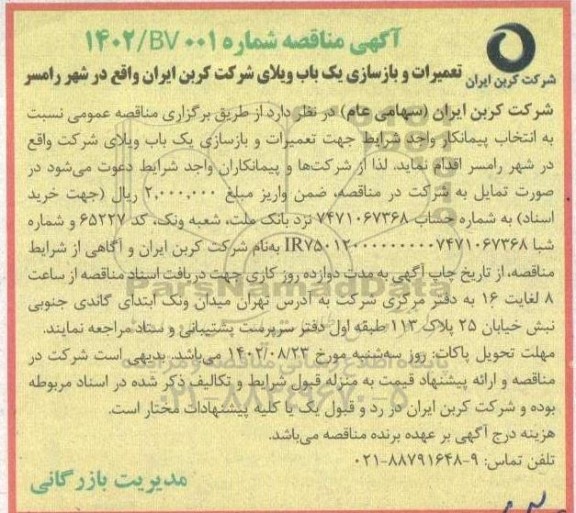 آگهی مناقصه شماره ۱۴۰۲/BV ۰۰۱
شرکت کربن ایران
تعمیرات و بازسازی یک باب ویلای شرکت کربن ایران واقع در شهر رامسر
شرکت کربن ایران (سهامی عام) در نظر دارد از طریق برگزاری مناقصه عمومی نسبت
به انتخاب پیمانکار واجد شرایط جهت تعمیرات و بازسازی یک باب ویلای شرکت واقع
در شهر رامسر اقدام نماید. لذا از شرکت‌ها و پیمانکاران واجد شرایط دعوت می‌شود در
صورت تمایل به شرکت در مناقصه، ضمن واریز مبلغ ۲,۰۰۰,۰۰۰ ریال (جهت خرید
اسناد) به شماره حساب ۷۴۷۱۰۶۷۳۶۸ نزد بانک ملت، شعبه ونک، کد ۶۵۲۲۷ و شماره
شبا IR۷۵۰۱۲۰۰۰۰۰۰۰۰۰۷۴۷۱۰۶۷۳۶۸ به‌نام شرکت کربن ایران و آگاهی از شرایط
مناقصه، از تاریخ چاپ آگهی به مدت دوازده روز کاری جهت دریافت اسناد مناقصه از ساعت
۸ لغایت ۱۶ به دفتر مرکزی شرکت به آدرس تهران میدان ونک ابتدای گاندی جنوبی
نبش خیابان ۲۵ پلاک ۱۱۳ طبقه اول دفتر سرپرست پشتیبانی و ستاد مراجعه نمایند.
مهلت تحویل پاکات: روز سه‌شنبه مورخ ۱۴۰۲/۰۸/۲۳ می‌باشد. بدیهی است شرکت در
مناقصه و ارائه پیشنهاد قیمت به منزله قبول شرایط و تکالیف ذکر شده در اسناد مربوطه
بوده و شرکت کربن ایران در رد و قبول یک یا کلیه پیشنهادات مختار است.
هزینه درج آگهی بر عهده برنده مناقصه می‌باشد.
تلفن تماس: ۹-۸۸۷۹۱۶۴۸-۰۲۱
مدیریت بازرگانی
ParsNamadData
پایگاه اطلاع رسانی مناقصه و مزایده
۰۲۱-۸۸۳۴۹۶۷۰-۵